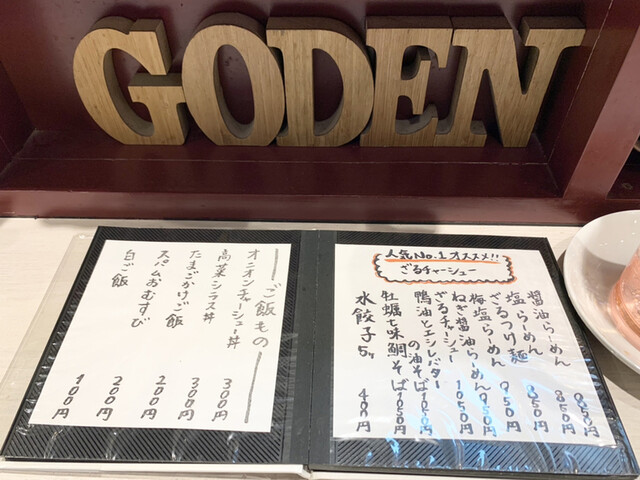 GODEN
人気No.1オススメ!!
ざるチャーシュー
醤油らーめん 850円
塩らーめん 850円
ざるつけ麺 850円
梅塩らーめん 950円
ねぎ醤油らーめん 950円
ざるチャーシュー 1050円
鴨油とエシレバター
の油そば 1050円
牡蠣七味鯛そば 1050円
水餃子5ヶ 400円
ご飯もの
オニオンチャーシュー丼 300円
高菜シラス丼 300円
たまごかけご飯 200円
スパムおむすび 200円
白ご飯 100円